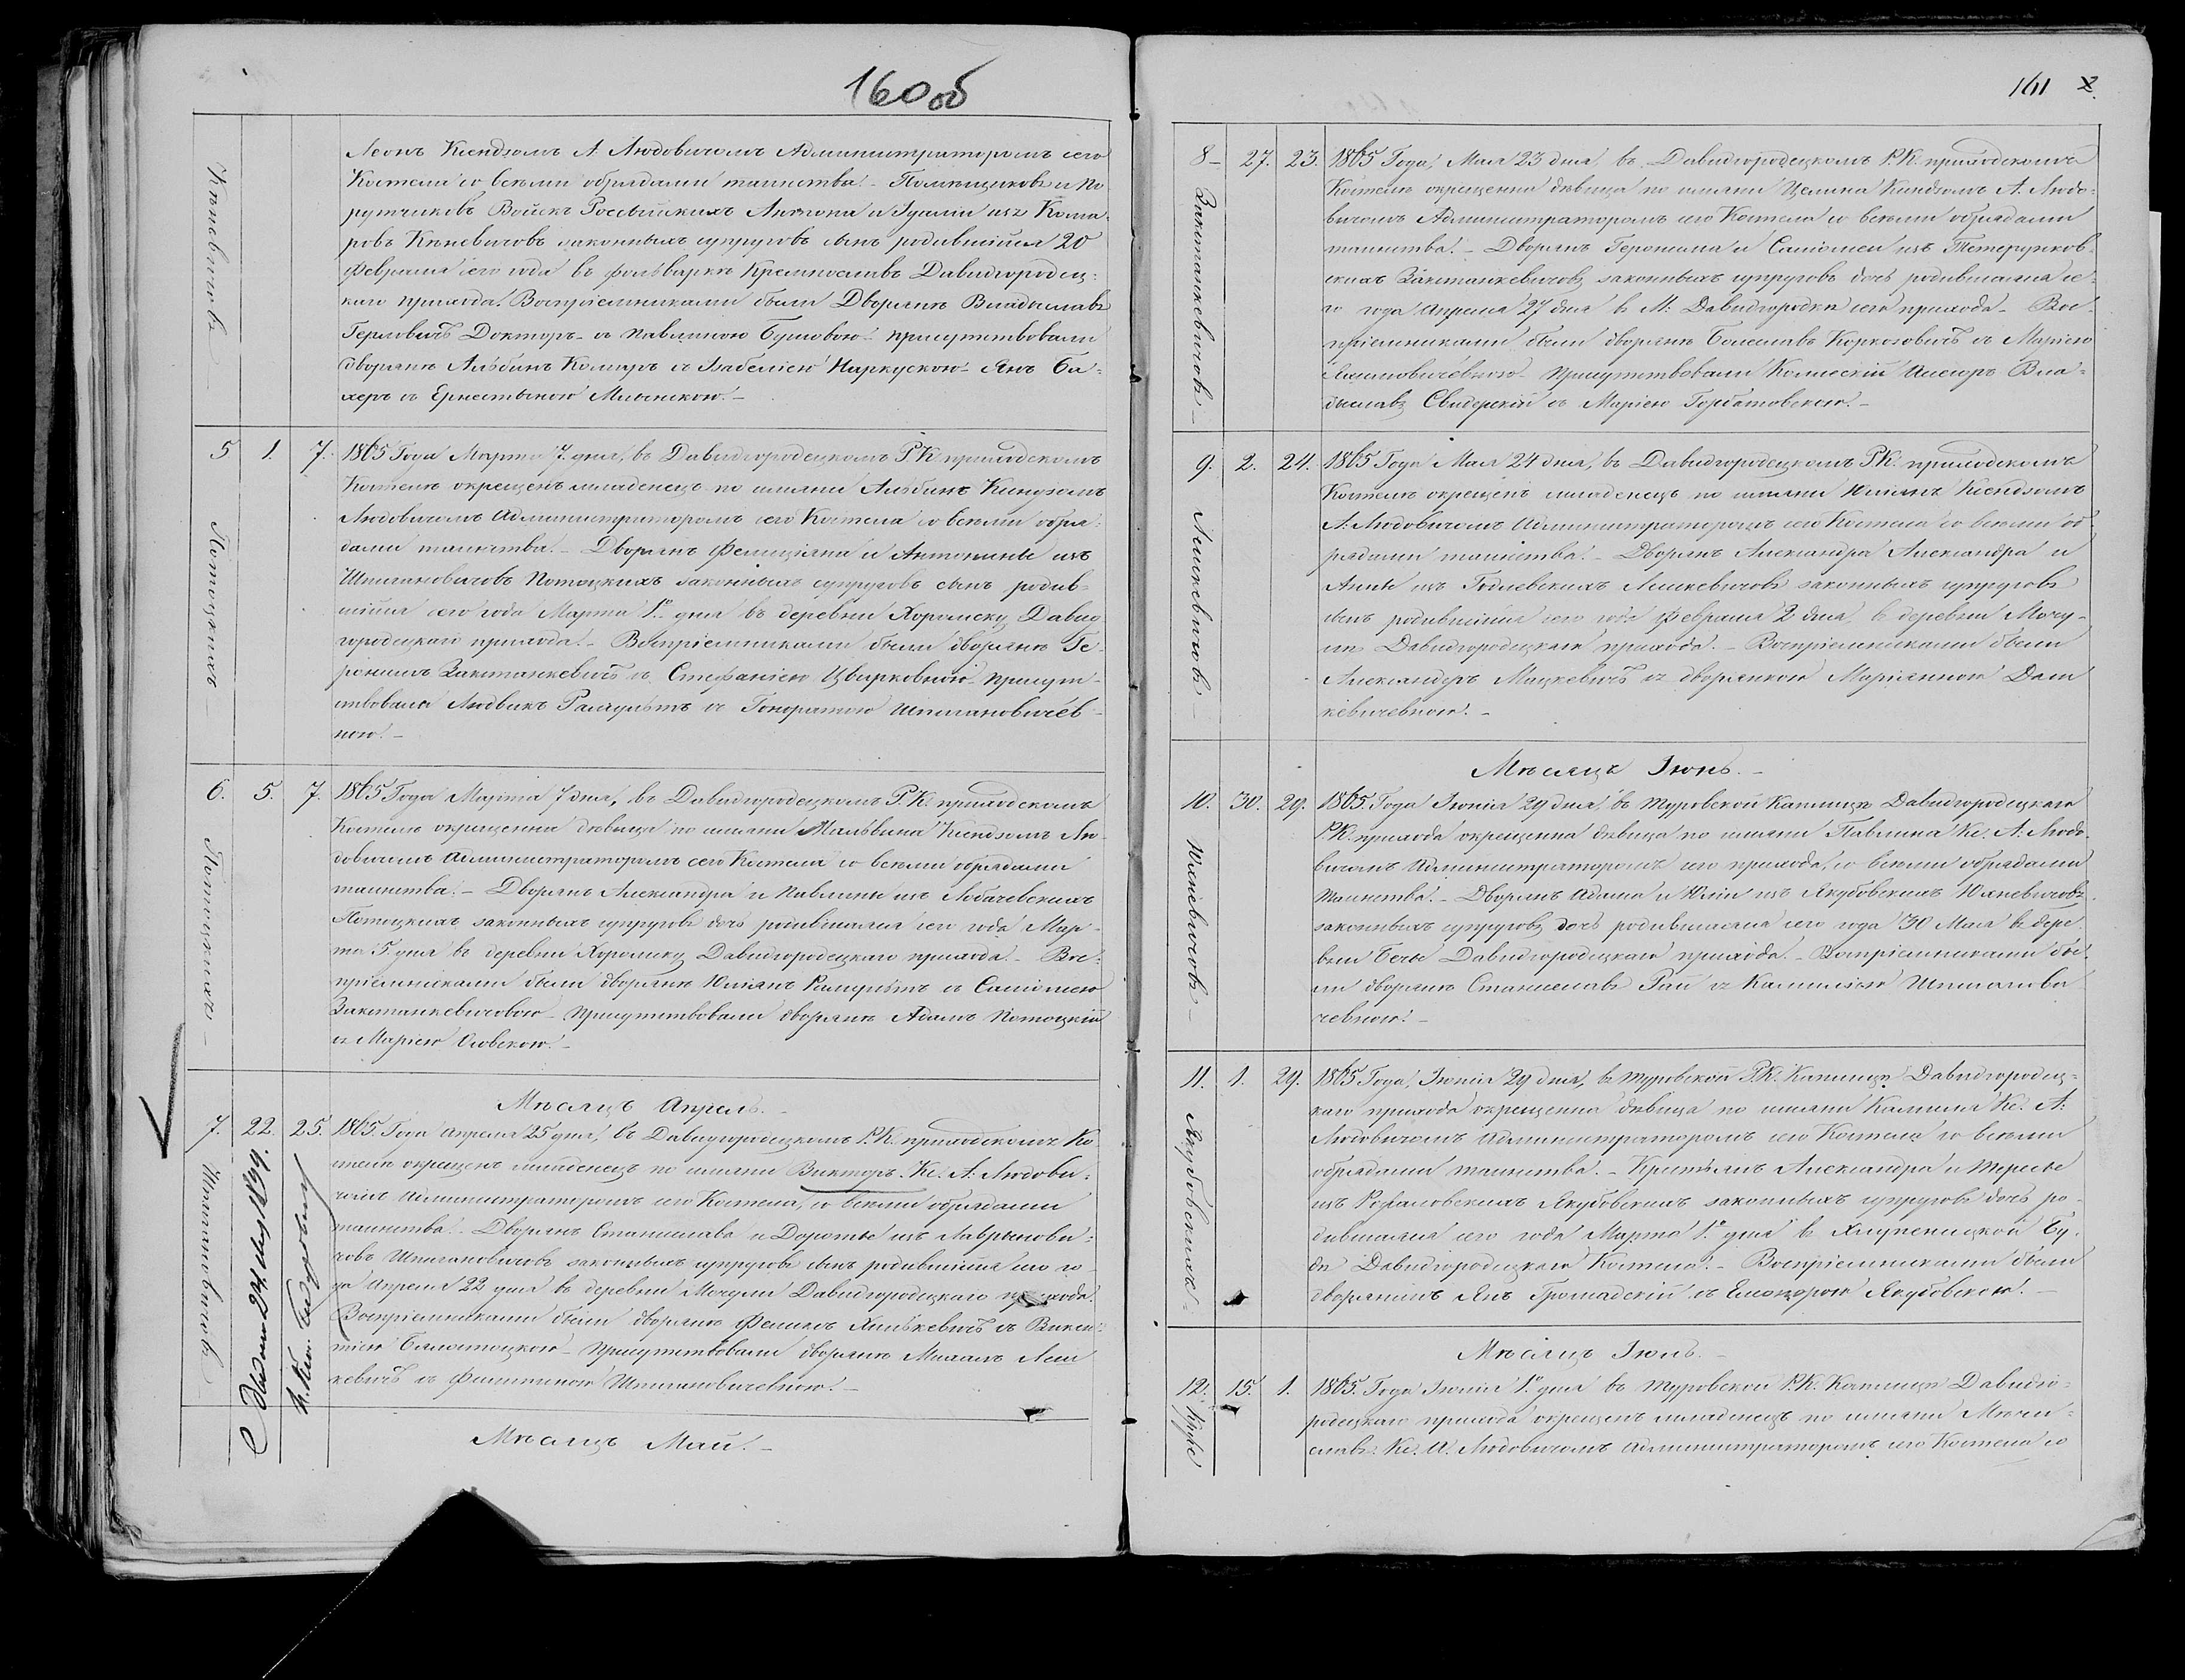 160 об
Леонъ Ксендзомъ А. Людовичомъ Администраторомъ сего
Костела со всеми обрядами таинства. – Помѣщиковъ и По
ручиковъ Войскъ Россійскихъ Антона и Іуліи изъ Кома
ровъ Кѣневичовъ законныхъ супруговъ сынъ родившійся 20
Февраля сего года въ фольваркѣ Давидгородец-
каго прихода. Воспріемниками были Дворяне Владыславъ
Докторъ съ Павлиною присутствовали
дворяне Альбинъ Комаръ съ Изабеллею Наркускою – Янъ Би-
херъ съ Ернестыною
Кѣневичовъ
5 1. 7. 1865 Года Марта 7. дня, въ Давидгородецкомъ Р. К. приходскомъ
Костеле окрещенъ младенецъ по имяни Альбинъ Ксендзомъ
Людовичомъ Администраторомъ сего Костела со всеми обря-
дами таинства. – Дворянъ Фелиціяна и Антонины изъ
Шпилановичовъ Потоцкихъ законныхъ супруговъ сынъ родив-
шійся сего года Марта 1го дня въ деревни Хоромску Давид
городецкаго прихода. – Воспріемниками были дворяне Ге-
ронимъ Закстанкевичъ съ Стефаніею Цвирковною – присутс-
твовали Людвикъ Рамультъ съ Гоноратою Шпилановичев-
ною. –
Потоцкихъ
6. 5. 7. 1865 Года Марта 7 дня, въ Давидгородецкомъ Р. К. приходскомъ
Костеле окрещенна дѣвица по имяни Мальвина Ксендзомъ Лю-
довичомъ Администраторомъ сего Костела со всеми обрядами
таинства. – Дворянъ Александра и Павлины изъ Лобачевскихъ
Потоцкихъ законныхъ супруговъ дочь родившаяся сего года Мар-
та 5. дня въ деревни Хоромску Давидгородецкаго прихода. – Вос-
пріемниками были дворяне Юліянъ Рамультъ съ Саломеею
Закстанкевичовою – присутствовали дворяне Адамъ Потоцкій
съ Маріею
Потоцкихъ
Мѣсяцъ Апрель. –
7. 22. 25. 1865. Года Апреля 25 дня, въ Давидгородецкомъ Р. К. приходскомъ Ко
стеле окрещенъ младенецъ по имяни Викторъ. Кс. А: Людови-
чомъ Администраторомъ сего Костела, со всеми обрядами
таинства. – Дворянъ Станислава и Дороты изъ Лаврынови-
човъ Шпилановичовъ законныхъ супруговъ сынъ родившійся сего го-
да Апреля 22 дня въ деревни Мочули Давидгородецкаго прихода.
Воспріемниками были дворяне Феликсъ Хилькевичъ съ Викен-
тіею Бялостоцкою – присутствовали дворяне Михалъ Леш
кевичъ съ Филипиною Шпилановичевною. –
Шпилановичовъ
Мѣсяцъ Май. –
161
8 – 27. 23. 1865 Года, Мая 23 дня, въ Давидгородецкомъ Р. К. приходскомъ
Костеле окрещенна дѣвица по имяни Целина Ксендзомъ А. Людо-
вичомъ Администраторомъ сего Костела со всеми обрядами
таинства. – Дворянъ Геронима и Саломеи изъ
скихъ Закстанкевичовъ законныхъ супруговъ дочь родившаяся се-
го года Апреля 27 дня въ М: Давидгородкѣ сего прихода – Вос-
пріемниками были дворяне Болеславъ Коркозовичъ съ Маріею
присутствовали Ассесоръ Вла-
дыславъ Свидерскій съ Маріею Горбатовскою. –
Закстанкевичовъ –
9. 2. 24. 1865 Года Мая 24 дня, въ Давидгородецкомъ Р. К. приходскомъ
Костеле окрещенъ младенецъ по имяни Юліянъ Ксендзомъ
А. Людовичомъ Администраторомъ сего Костела со всеми об-
рядами таинства. – Дворянъ Александра Александра и
Анны изъ Годлевскихъ Лешкевичовъ законныхъ супруговъ
сынъ родившійся сего года Февраля 2 дня, въ деревни Мочу-
ли Давидгородецкаго прихода. – Воспріемниками были
Александеръ Мацкевичъ съ дворянкою Маріянною Даш
кевичевною. –
Лешкевичовъ –
Мѣсяцъ Іюнь. –
10. 30. 29. 1865 Года Іюнія 29 дня, въ Туровской Каплицѣ Давидгородецкаго
Р. К. прихода окрещенна дѣвица по имяни Павлина Кс. А. Людо-
вичомъ Администраторомъ сего прихода, со всеми обрядами
таинства. – Дворянъ Адама и Юліи изъ Якубовскихъ Юхневичовъ
законныхъ супруговъ дочь родившаяся сего года 30 Мая въ дере
вни Бечи Давидгородецкаго прихода. – Воспріемниками бы-
ли дворяне Станиславъ Рай съ Камиллею Шпиланови
чевною. –
Юхневичовъ –
11. 1. 29. 1865 Года, Іюнія 29 дня, въ Туровской Р. К. Каплицѣ Давидгородец-
каго прихода окрещенна дѣвица по имяни Камиля Кс. А:
Людовичомъ Администраторомъ сего Костела со всеми
обрядами таинства. – Крестьянъ Александра и Тересы
изъ Якубовскихъ законныхъ супруговъ дочь ро-
дившаяся сего года Марта 1го дня въ Хлупеницкой Бу-
дѣ Давидгородецкаго Костела. – Воспріемниками были
дворянинъ Янъ Громадскій съ Елеонорою Якубовскою. –
Якубовскихъ –
Мѣсяцъ Іюль. –
12. 15. 1. 1865. Года Іюлія 1го дня въ Туровской Р. К. Каплицѣ Давидго-
родецкаго прихода окрещенъ младенецъ по имяни Мѣчи-
славъ. Кс. А. Людовичомъ Администраторомъ сего Костела со